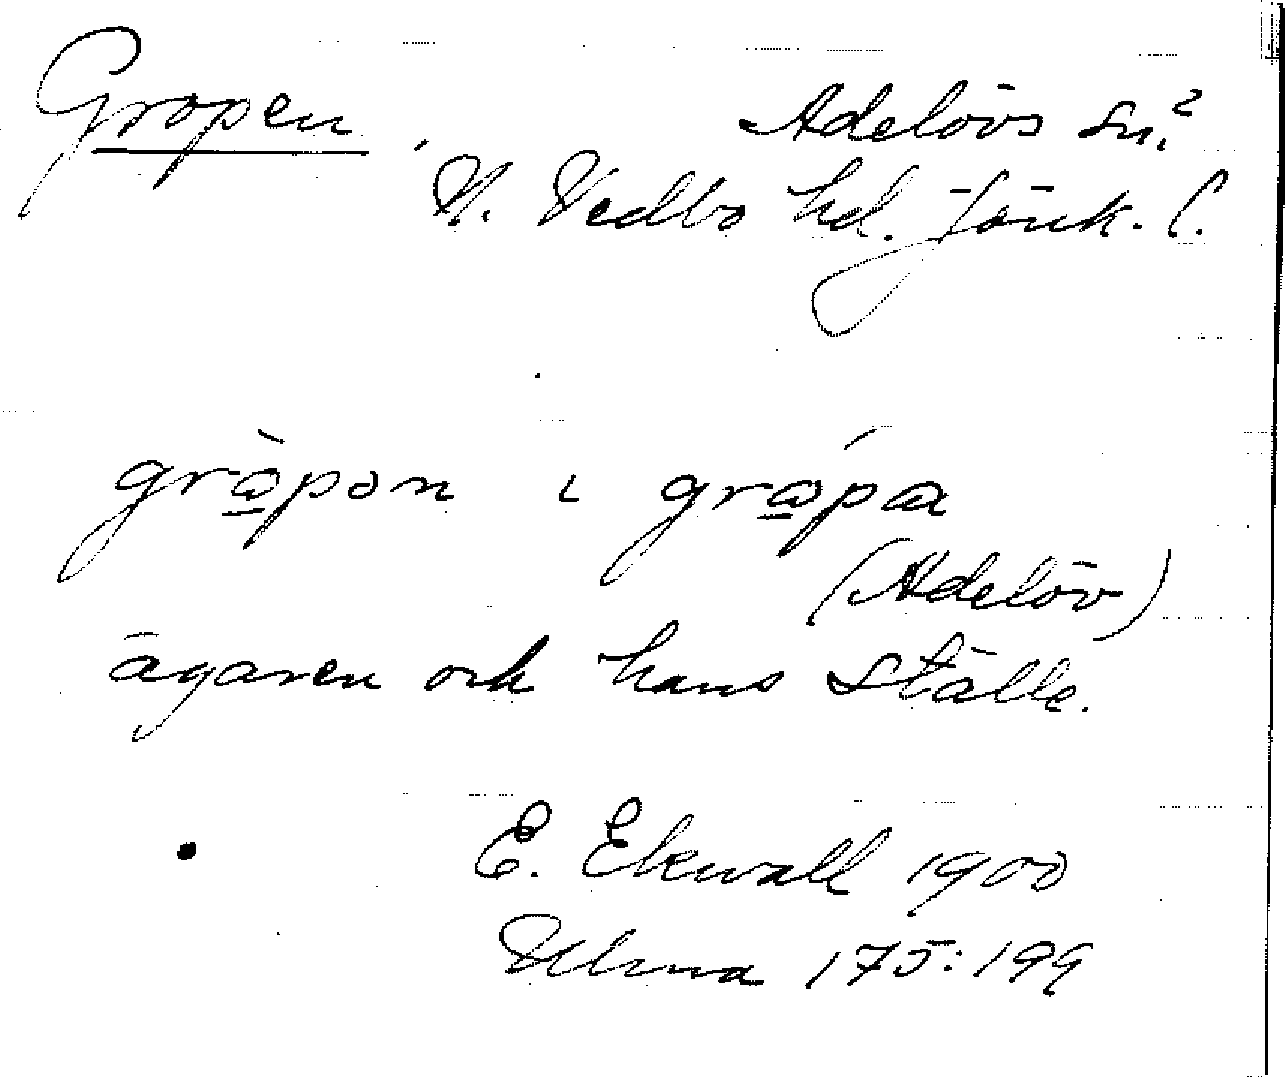 Gropen
Adelövs sn.²
N. Vedbo hd. Jönk. l.
grò̱pən ɩ gró̱pa
(Adelöv)
ägaren och hans ställe.
E. Ekwall 1900
Ulma 175:199